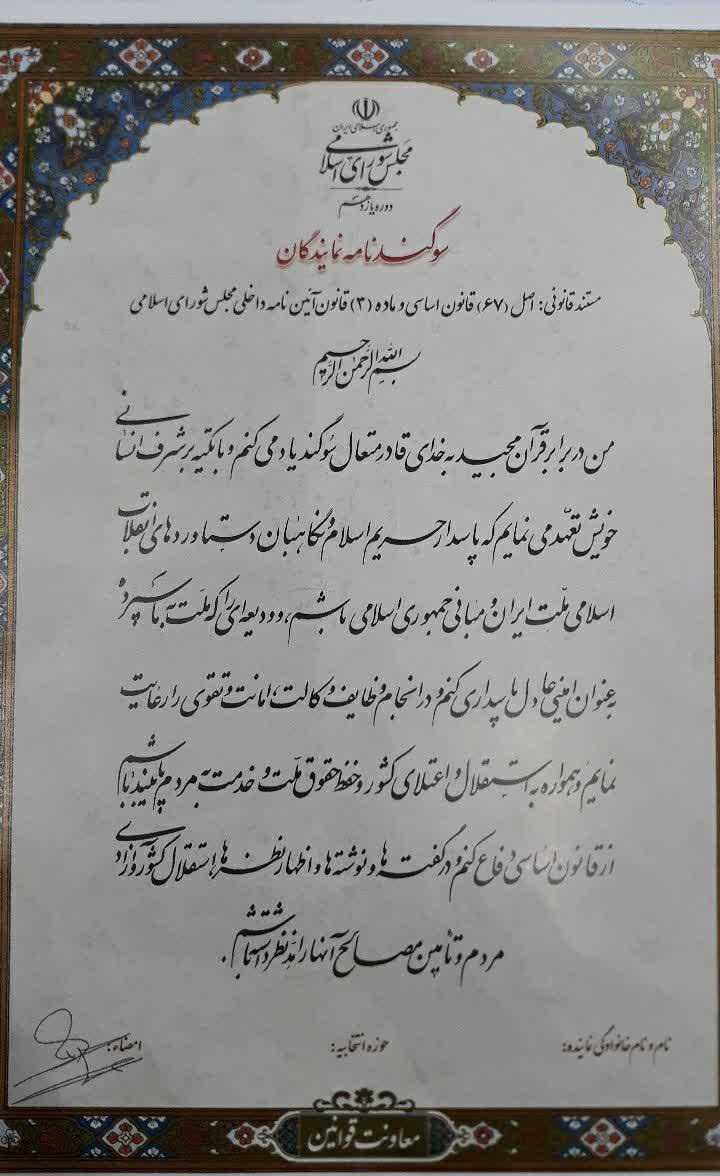 جمهوری اسلامی ایران
مجلس شورای اسلامی
دوره یازدهم
سوگندنامه نمایندگان
مستند قانونی: اصل (۶۷) قانون اساسی و ماده (۳) قانون آئین نامه داخلی مجلس شورای اسلامی
بسم الله الرحمن الرحیم
من در برابر قرآن مجید، به خدای قادر متعال سوگند یاد می کنم و با تکیه بر شرف انسانی
خویش تعهد می نمایم که پاسدار حریم اسلام و نگاهبان دستاوردهای انقلاب
اسلامی ملت ایران و مبانی جمهوری اسلامی باشم، و ودیعه ای را که ملت به ما سپرده
به عنوان امینی عادل پاسداری کنم و در انجام وظایف وکالت، امانت و تقوی را رعایت
نمایم و همواره به استقلال و اعتلای کشور و حفظ حقوق ملت و خدمت به مردم پایبند باشم
از قانون اساسی دفاع کنم و در گفته ها و نوشته ها و اظهارنظرها، استقلال کشور و آزادی
مردم و تأمین مصالح آنها را مدنظر داشته باشم.
نام و نام خانوادگی نماینده: حوزه انتخابیه: امضاء:
معاونت قوانین